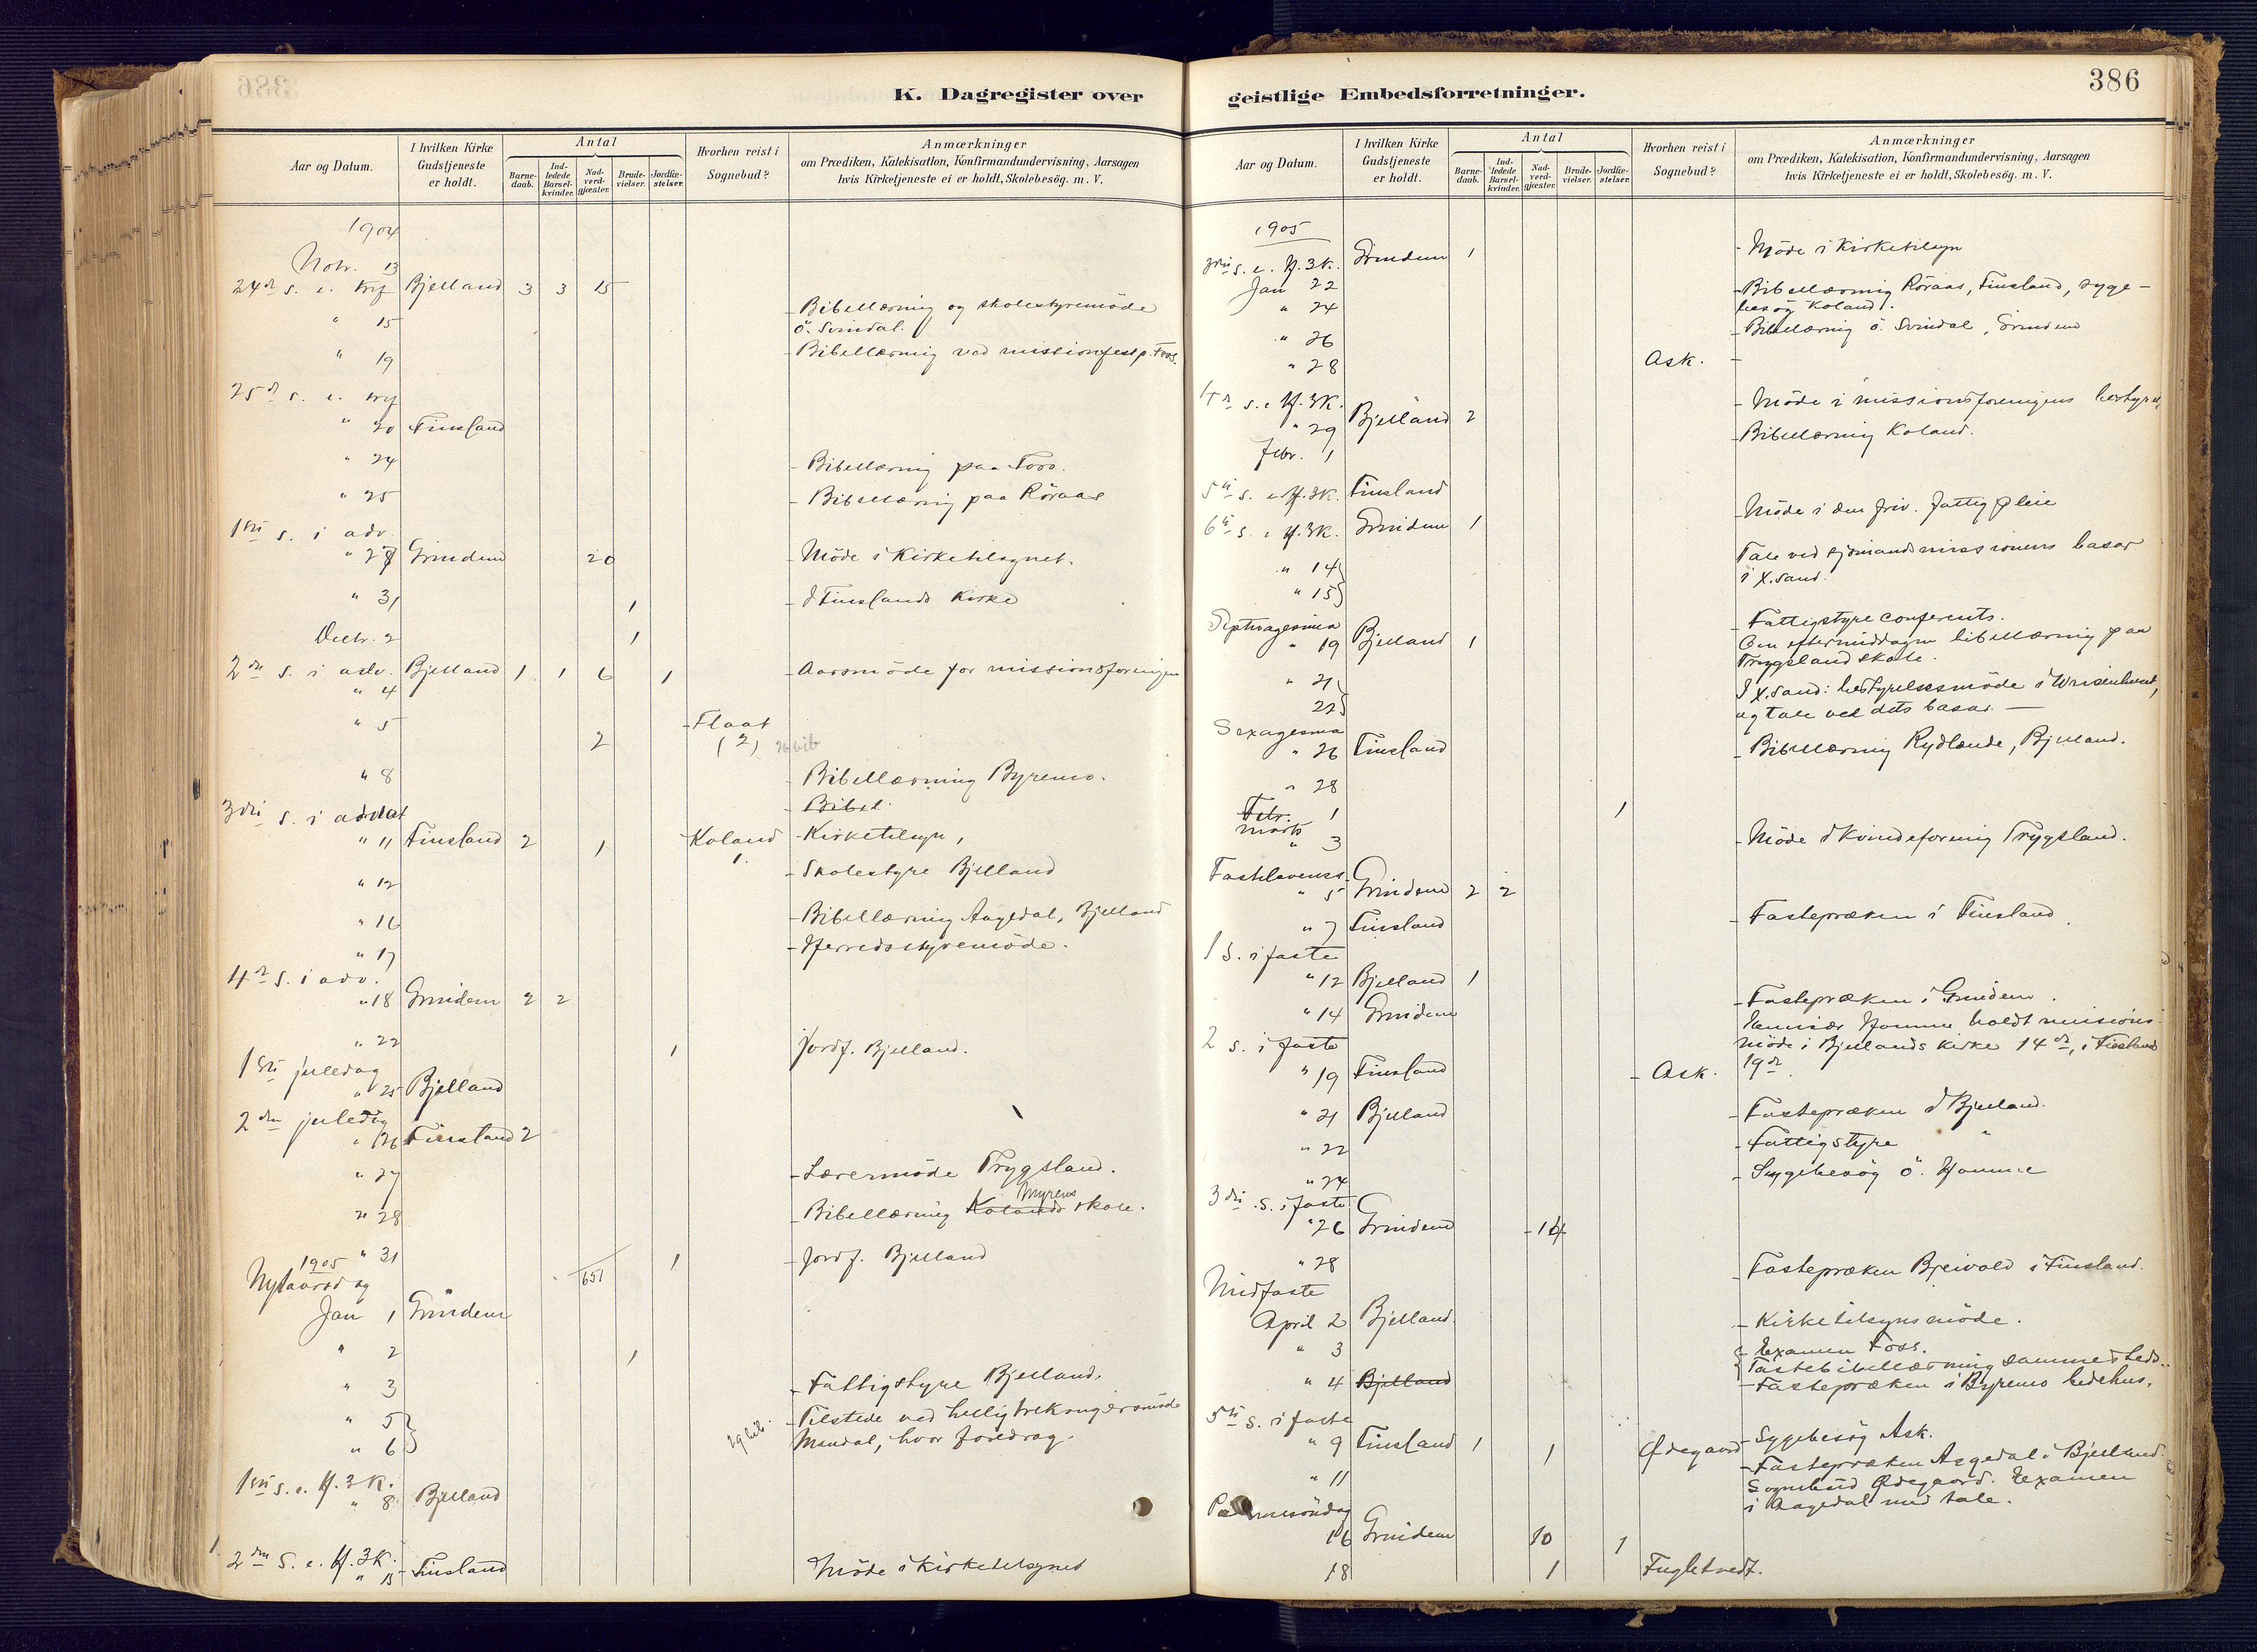 386
K. Dagregister over geistlige Embedsforretninger.
Aar og Datum.
I hvilken Kirke Gudstjeneste er holdt.
Antal
Barnedaab.
Indledede Barselkvinder.
Nadverdgjæster.
Brudevielser.
Jordfæstelser.
Hvorhen reist i Sognebud?
Anmærkninger
om Prædiken, Katekisation, Konfirmandundervisning, Aarsagen
hvis Kirketjeneste ei er holdt, Skolebesøg. m. V.
1904
Novr. 13
24de s. e. tref Bjelland 3 3 15
" 15 - Bibellæsning og skolestyremöde
ö. Svindal.
" 19 - Bibellæsning ved missionsfest p. Foss.
25de s. e. tref
" 20 Finsland
" 24 - Bibellæsning paa Foss.
" 25 - Bibellæsning paa Röraas
1ste s. i adv.
" 27 Grindem 20 - Möde i Kirketilsynet.
" 31 1 - I Finslands Kirke
Decbr. 2 1
2den s. i adv. Bjelland 1 1 6 1 - Aarsmöde for missionsforeningen
" 4
" 5 - Flaat
2 (2)
" 8 - Bibellæsning Byremo.
3die s. i advent - Bibel.
" 11 Finsland 2 1 Koland - Kirketilsyn,
1.
" 12 - Skolestyre Bjelland
" 16 - Bibellæsning Aagedal, Bjelland
" 17 - Herredsstyremöde.
4de s. i adv.
" 18 Grindem 2 2
" 22 1 Jordf. Bjelland.
1ste juledag
" 25 Bjelland
2den juledag
" 26 Finsland 2
" 27 - Lærermöde Trygsland.
" 28 - Bibellæsning Kolands Myrens skole.
" 31 1 - Jordf. Bjelland
1905 651
Nytaarsdag
Jan 1 Grindem
" 2 1
" 3 - Fattigstyre Bjelland.
" 5 - Tilstede ved helligtrekongersmöde
" 6 Mandal, hvor foredrag.
1ste s. e. H. 3 K.
" 8 Bjelland
2den S. e. H. 3 K.
" 15 Finsland Möde i Kirketilsynet
386
Aar og Datum.
I hvilken Kirke Gudstjeneste er holdt.
Antal
Barnedaab.
Indledede Barselkvinder.
Nadverdgjæster.
Brudevielser.
Jordfæstelser.
Hvorhen reist i Sognebud?
Anmærkninger
om Prædiken, Katekisation, Konfirmandundervisning, Aarsagen
hvis Kirketjeneste ei er holdt, Skolebesög. m. V.
1905
3die s. e. H. 3 K. Grindem 1 - Möde i Kirketilsyn
Jan 22
" 24 - Bibellæsning Röraas, Finsland, syge-
besög Koland.
" 26 - Bibellæsning ö. Svindal, Grindem
" 28 Ask. -
4de s. e. H. 3 K. - Möde i missionsforeningens bestyrel.
" 29 Bjelland 2
Febr. 1 - Bibellæsning Koland.
5te s. e. H. 3 K. Finsland
6te s. e. H. 3 K. Grindem 1 - Möde i den friv. fattigpleie
" 14 Tale ved sjömandsmissionens basar
" 15 i X.sand.
Septuagesima - Fattigstyre conferents.
" 19 Bjelland 1 Om eftermiddagen bibellæsning paa
Trygsland skole.
" 21 I X.sand: bestyrelsesmöde i
22 og tale ved dets basar. —
Sexagesima
" 26 Finsland - Bibellæsning Rydlende, Bjelland.
" 28
Febr. 1 1
marts
" 3 - Möde I Kvindeforening Trygsland.
Fastelavenss.
" 5 Grindem 2 2
" 7 Finsland - Fastepræken i Finsland
1 S. i faste
" 12 Bjelland 1
" 14 Grindem - Fastepræken i Grindem.
Emissær Homme holdt missions-
2 s. i faste möde i Bjellands kirke 14de, i Finsland
" 19 Finsland - Ask. 19de.
" 21 Bjelland - Fastepræken I Bjelland.
" 22 - Fattigstyre "
" 24 - Sygebesög ö. Homme
3die s. i faste
" 26 Grindem 14
" 28 - Fastepræken Bjeivold i Finsland.
Midfaste
April 2 Bjelland. - Kirketilsynsmöde.
" 3 - Examen Foss.
Fastebibellæsning sammesteds.
" 4 Bjelland - Fastepræken i Byremo bedehus.
5te s. i faste
" 9 Finsland 1 1 Ödegaard - Sygebesög Ask.
" 11 - Fastepræken Aagedal i Bjelland.
Sognebud Ödegaard. Examen
i Aagedal med tale.
Palmesöndag
16 Grindem 10 1
18 1 Fugletvedt.